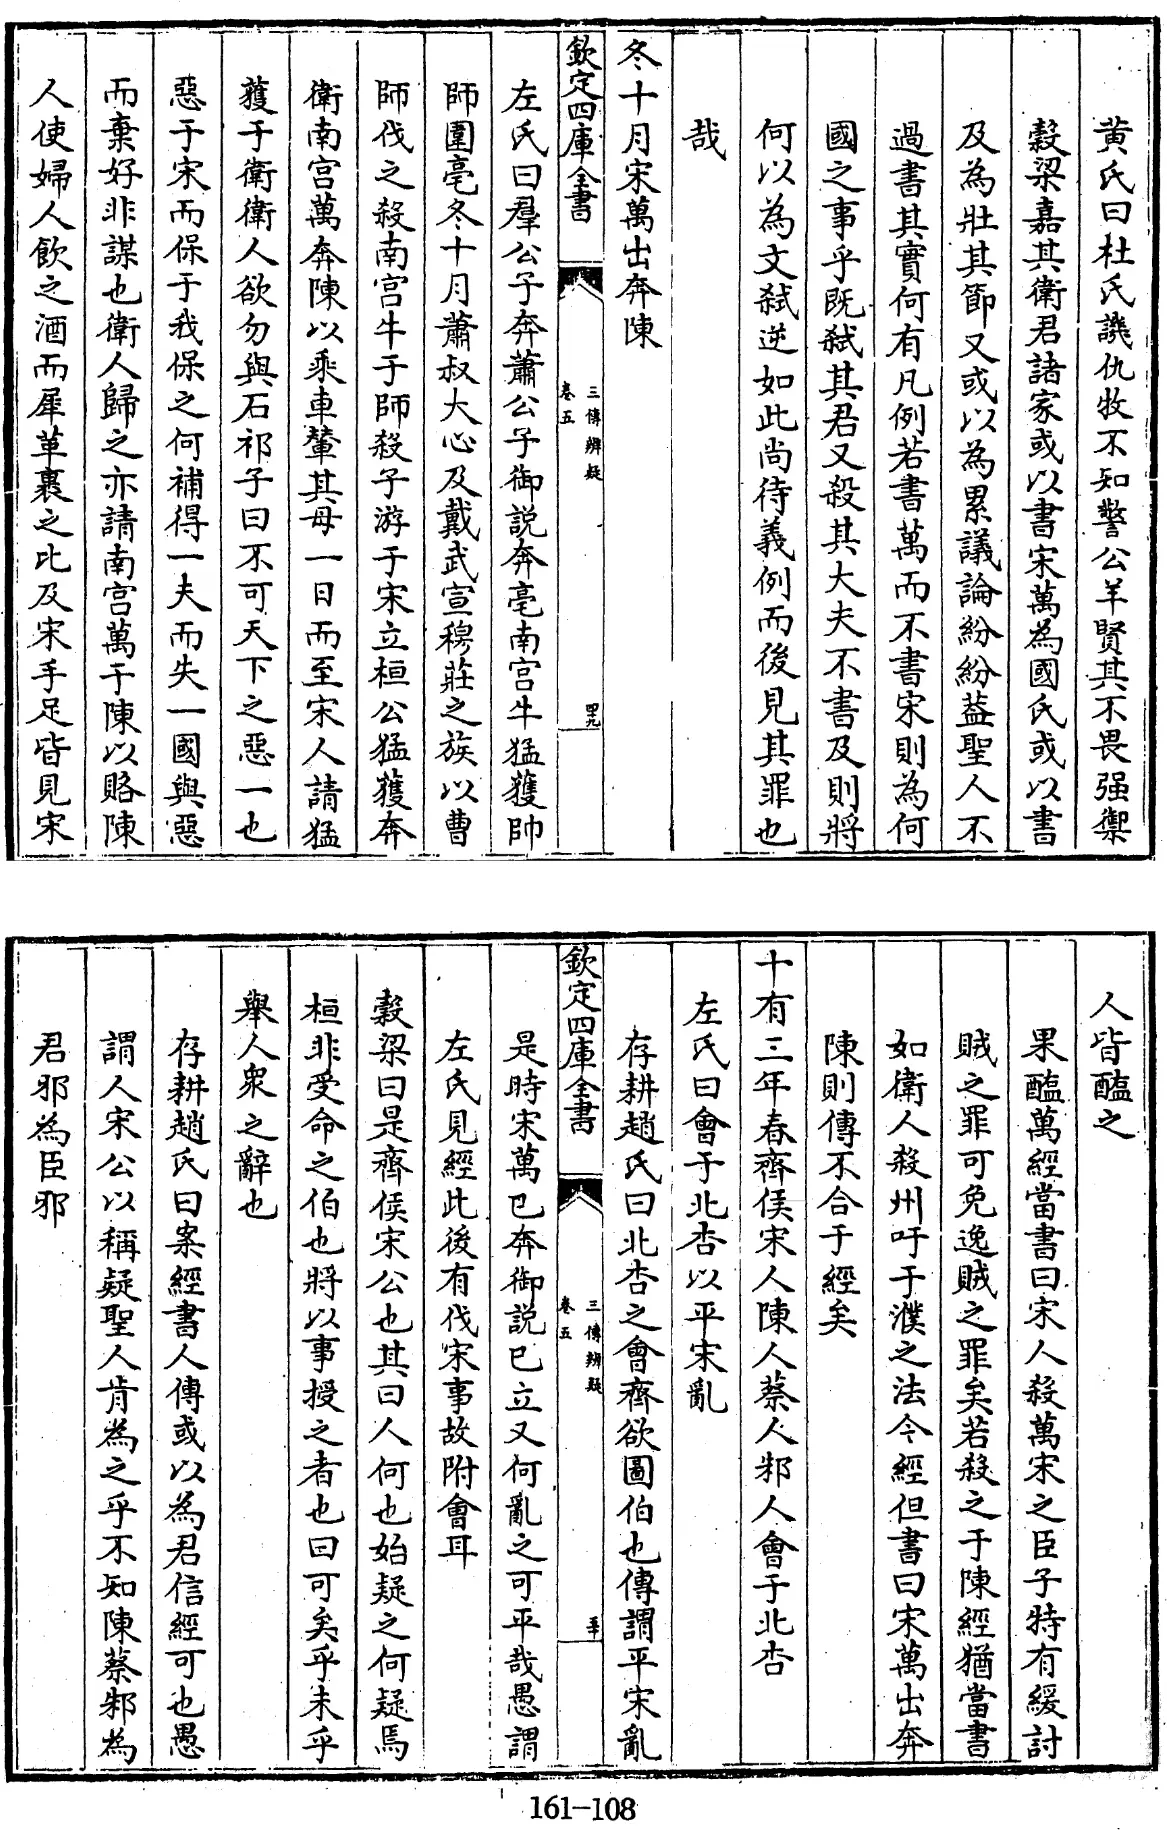 黄氏曰杜氏譏仇牧不知警公羊賢其不畏强禦
穀梁嘉其衛君諸家或以書宋萬為國氏或以書
及為壯其節又或以為累議論紛紛葢聖人不
過書其實何有凡例若書萬而不書宋則為何
國之事乎既弑其君又殺其大夫不書及則將
何以為文弑逆如此尚待義例而後見其罪也
哉
冬十月宋萬出奔陳
欽定四庫全書
三傳辨疑
卷五
四九
左氏曰羣公子奔蕭公子御説奔亳南宫牛猛獲帥
師圍亳冬十月蕭叔大心及戴武宣穆莊之族以曹
師伐之殺南宫牛于師殺子游于宋立桓公猛獲奔
衛南宫萬奔陳以乘車輦其母一日而至宋人請猛
獲于衛衛人欲勿與石祁子曰不可天下之惡一也
惡于宋而保于我保之何補得一夫而失一國與惡
而棄好非謀也衛人歸之亦請南宫萬于陳以賂陳
人使婦人飲之酒而犀革裹之比及宋手足皆見宋
人皆醢之
果醢萬經當書曰宋人殺萬宋之臣子特有緩討
賊之罪可免逸賊之罪矣若殺之于陳經猶當書
如衛人殺州吁于濮之法今經但書曰宋萬出奔
陳則傳不合于經矣
十有三年春齊侯宋人陳人蔡人邾人會于北杏
左氏曰會于北杏以平宋亂
存耕趙氏曰北杏之會齊欲圖伯也傳謂平宋亂
欽定四庫全書
三傳辨疑
卷五
五十
是時宋萬已奔御説已立又何亂之可平哉愚謂
左氏見經此後有伐宋事故附會耳
穀梁曰是齊侯宋公也其曰人何也始疑之何疑焉
桓非受命之伯也將以事授之者也曰可矣乎未乎
舉人衆之辭也
存耕趙氏曰案經書人傳或以為君信經可也愚
謂人宋公以稱疑聖人肯為之乎不知陳蔡邾為
君邪為臣邪
161-108